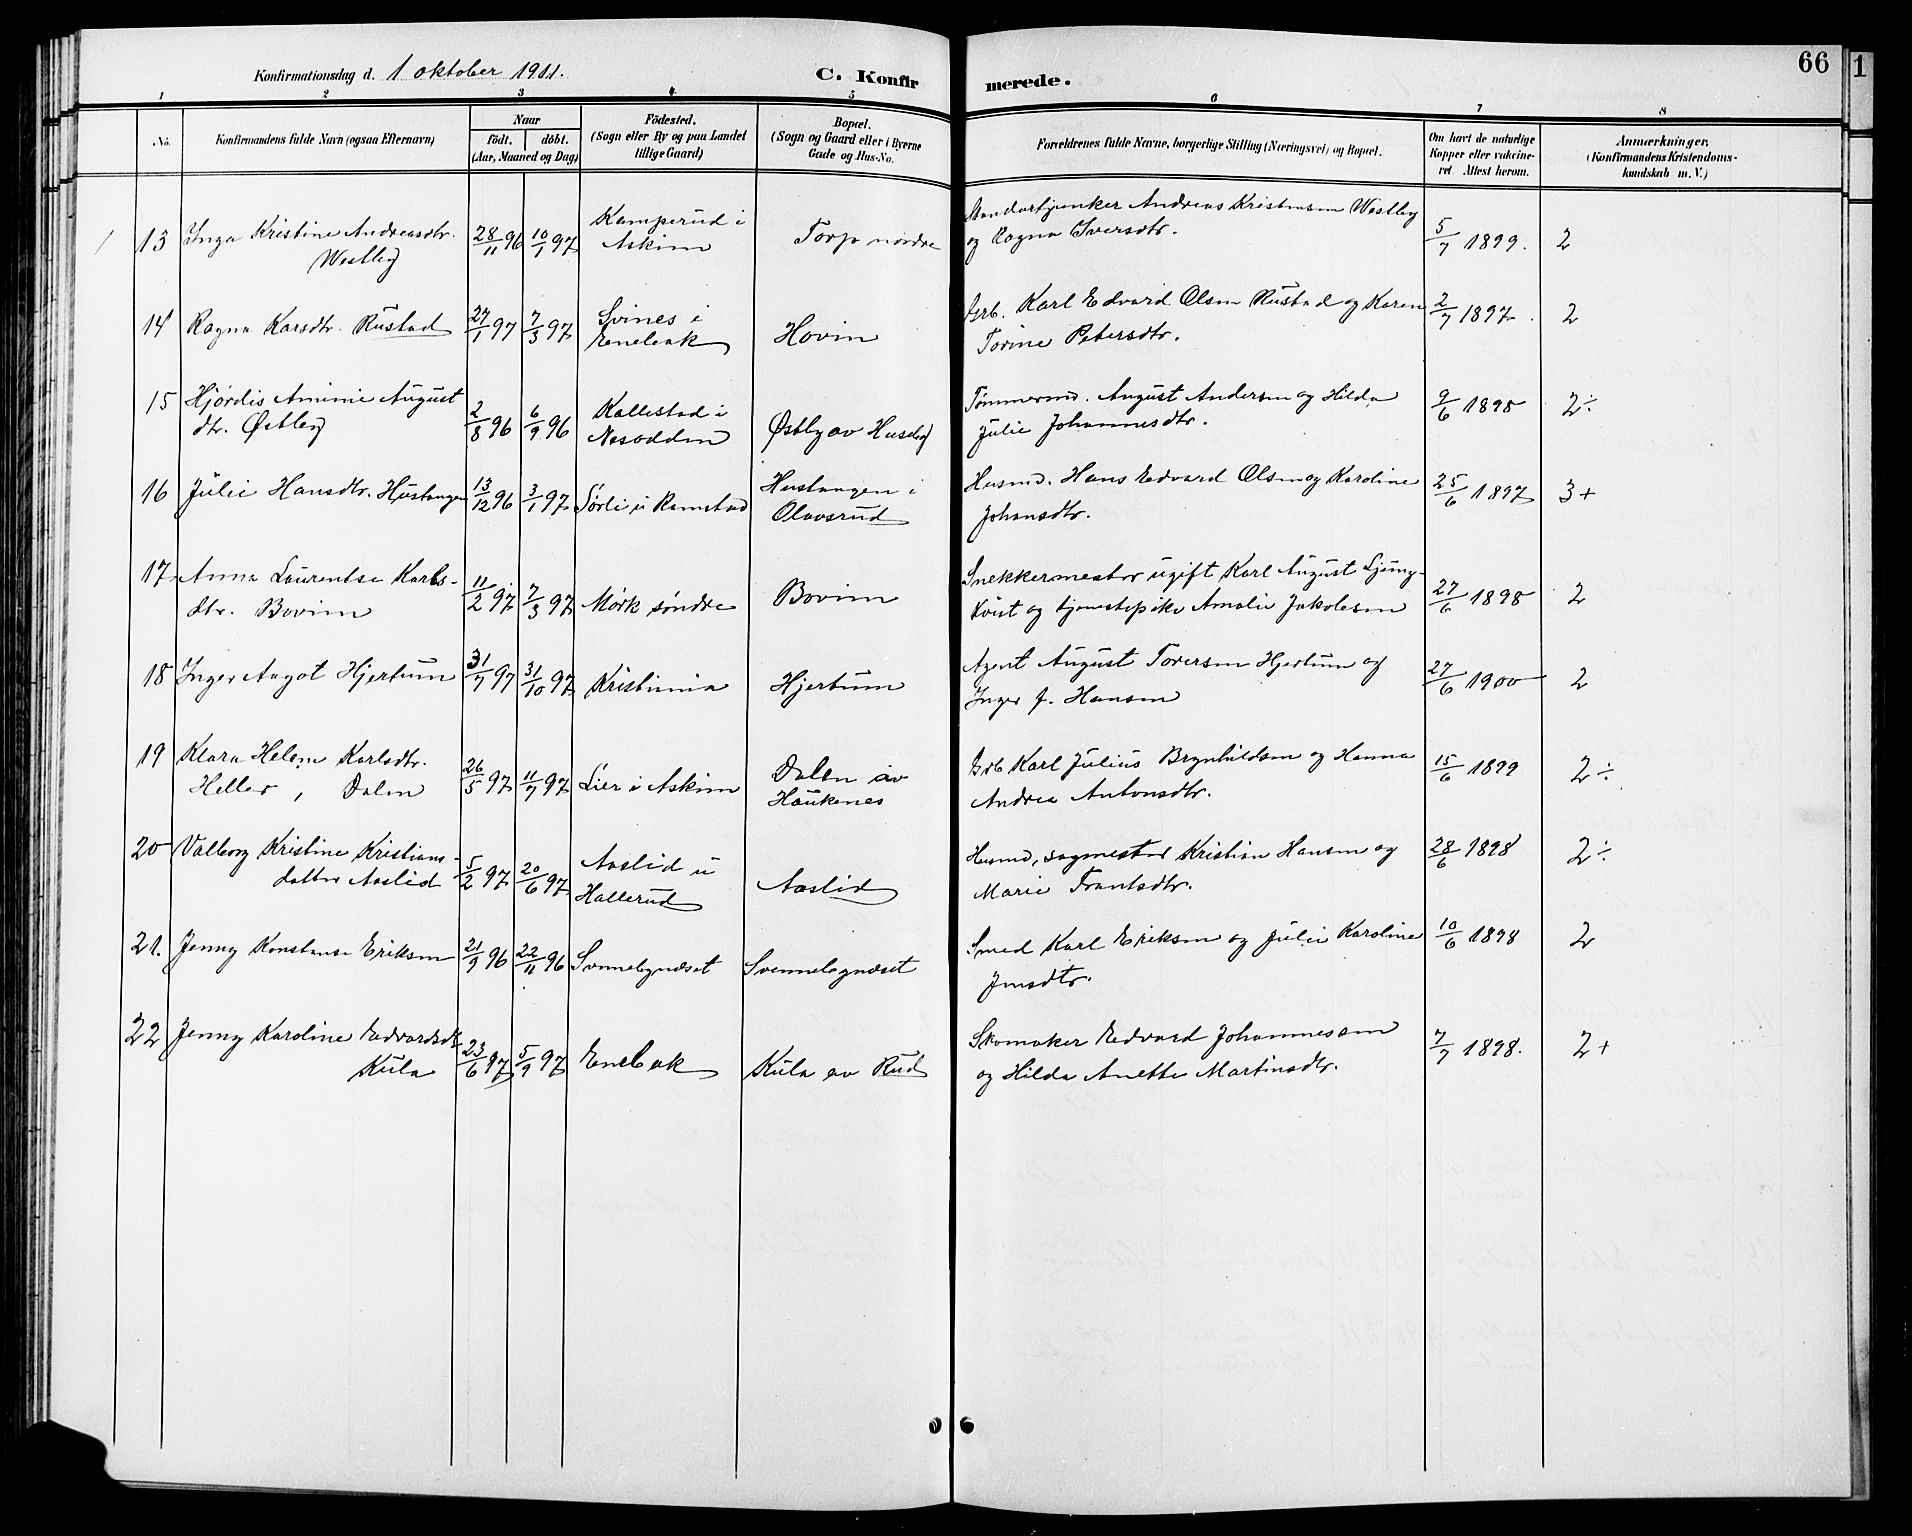 66
1
Konfirmationsdag d. 1 oktober 1911.
C. Konfirmerede.
1 2 3 4 5 6 7 8
No.
Konfirmandens fulde Navn (ogsaa Efternavn)
Naar
födt. döbt.
(Aar, Maaned og Dag)
Födested.
(Sogn eller By og paa Landet
tillige Gaard)
Bopæl.
(Sogn og Gaard eller i Byerne
Gade og Hus-No.
Forældrenes fulde Navne, borgerlige Stilling (Næringsvei) og Bopæl.
Om havt de naturlige
Kopper eller vakcine-
ret. Attest herom.
Anmærkninger.
(Konfirmandens Kristendoms-
kundskab m. V.)
13 Inga Kristine Andreasdtr. 28/11 96 10/1 97 Kamperud i Torp nordre
Westby Askim
Andreas Kristensen Westby 5/7 1899. 2
og Ragna Iversdtr.
14 Ragna Karsdtr. Rustad 27/1 97 7/3 97 Svines i Hovin
Enebak
Grb. Karl Edvard Olsen Rustad og Karen 2/7 1897. 2
Torine Petersdtr.
15 Hjørdis Aminie August 2/8 96 6/9 96 Kallestad i Østby av Huseby
dtr. Østby Nesodden
Tømmermd. August Andersen og Hilda 9/6 1898 2÷
Julie Johannesdtr.
16 Julie Hansdtr. Hustangen 13/12 96 3/1 97 Sørli u Ramstad Hustangen i
Olavsrud
Husmd. Hans Edvard Olsen og Karoline 25/6 1897 3+
Johansdtr.
17. Anna Laurentse Karls- 11/2 97 7/3 97 Mørk søndre Bovim
dtr. Bovim
Snekkermester ugift Karl August Ljung- 27/6 1898 2
kvist og tjenestepike Amalie Jakobsen
18 Inger Aagot Hjertum 31/7 97 31/10 97 Kristiania Hjertum
Agent August Toversen Hjertum og 27/6 1900 2
Inger f. Hansen
19 Klara Helene Karlsdtr. 26/5 97 11/7 97 Lier i Askim Dalen av
Heller, Dalen Haukenes
Grb Karl Julius Brynhildsen og Hanna 15/6 1899 2÷
Andrea Antonsdtr.
20 Valborg Kristine Kristians- 5/2 97 20/6 97 Aaslid u Aaslid
datter Aaslid Hallerud
Husmd, sagmester Kristian Hansen og 28/6 1898 2÷
Marie Frantsdtr.
21. Jenny Konstanse Eriksen 21/9 96 22/11 96 Svennebyneset Svennebyneset
Smed Karl Eriksen og Julie Karoline 10/6 1898 2
Jensdtr.
22 Jenny Karoline Edvardsdt. 23/6 97 5/9 97 Enebak Kula av Rud
Kula
Skomaker Edvard Johannessen 7/7 1898. 2+
og Hilda Anette Martinsdtr.